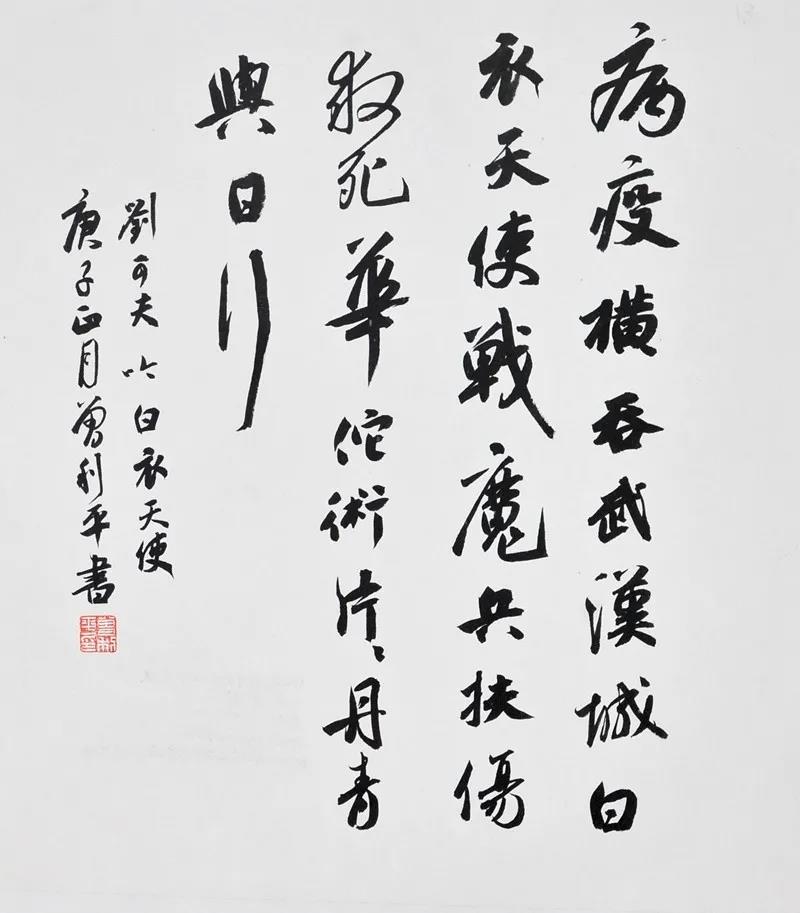 病疫橫吞武漢城白
衣天使戰魔兵扶傷
救死華佗術片〻丹青
與日行
劉可夫吟白衣天使
庚子正月曾利平書
曾利平印